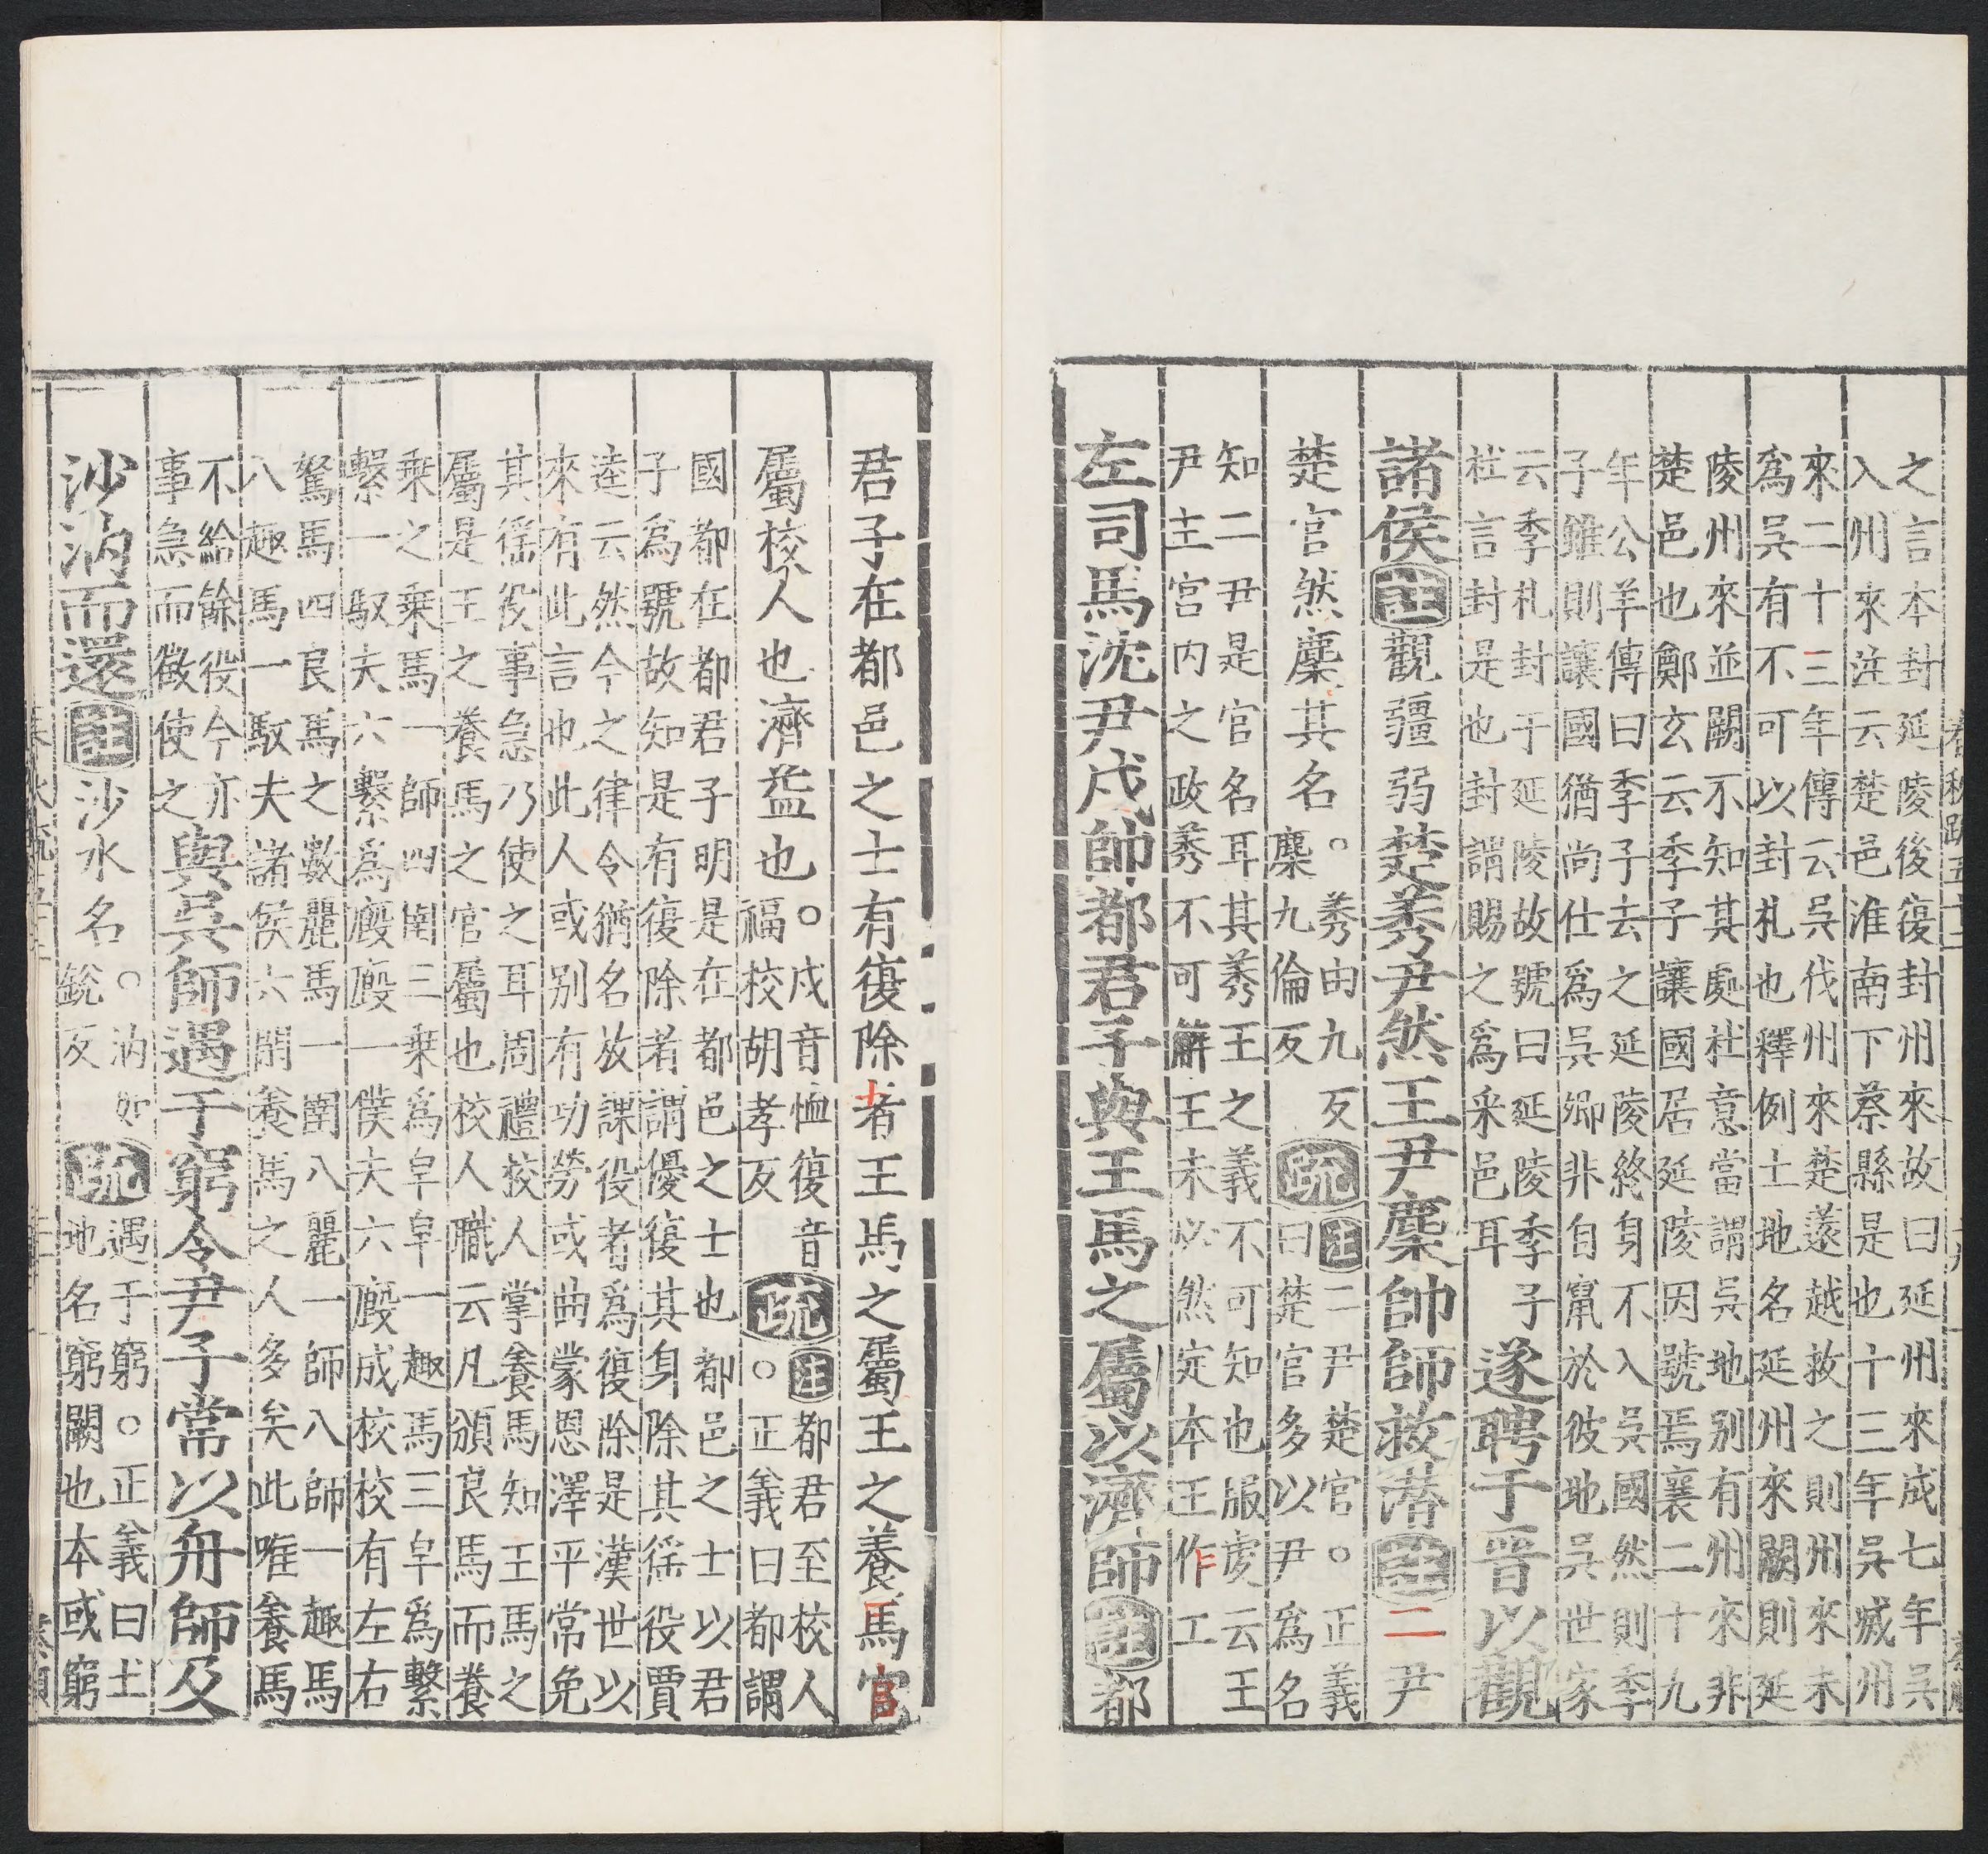 之言本封延陵後復封州來故曰延州來成七年吳
入州來注云楚邑淮南下蔡縣是也十三年吳滅州
來二十三年傳云吳伐州來楚薳越救之則州來未
爲吳有不可以封札也釋例土地名延州來闕則延
陵州來並闕不知其處杜意當謂吳地别有州來非
楚邑也鄭玄云季子讓國居延陵因號焉襄二十九
年公羊傳曰季子去之延陵終身不入吳國然則季
子雖則讓國猶尚仕爲吳卿非自竄於彼地吳世家
云季札封于延陵故號曰延陵季子
杜言封是也封謂賜之爲采邑耳
遂聘于晉以觀
諸侯注觀疆弱楚莠尹然王尹麇帥師救潜注二尹
楚官然麇其名。莠由九反
麇九倫反
疏注二尹楚官。正義
曰楚官多以尹爲名
知二尹是官名耳其莠王之義不可知也服虔云王
尹主宮内之政莠不可解王未必然定本王作工
左司馬沈尹戍帥都君子與王馬之屬以濟師注都
君子在都邑之士有復除者王馬之屬王之養馬官
屬校人也濟益也。戍音恤復音
福校胡孝反
疏注都君至校人
。正義曰都謂
國都在都君子明是在都邑之士也都邑之士以君
子爲號故知是有復除者謂優復其身除其徭役賈
逵云然今之律令猶名放課役者爲復除是漢世以
來有此言也此人或别有功勞或曲蒙恩澤平常免
其徭役事急乃使之耳周禮校人掌養馬知王馬之
屬是王之養馬之官屬也校人職云凡頒良馬而養
乗之乗馬一師四圉三乗爲皁皁一趣馬三皁爲繫
繫一馭夫六繫爲廄廄一僕夫六廄成校校有左右
駑馬四良馬之數麗馬一圉八麗一師八師一趣馬
八趣馬一馭夫諸侯六閑養馬之人多矣此唯養馬
不給餘役今亦
事急而徵使之
與吳師遇于窮令尹子常以舟師及
沙汭而還注沙水名。汭如
銳反
疏遇于窮。正義曰土
地名窮闕也本或窮